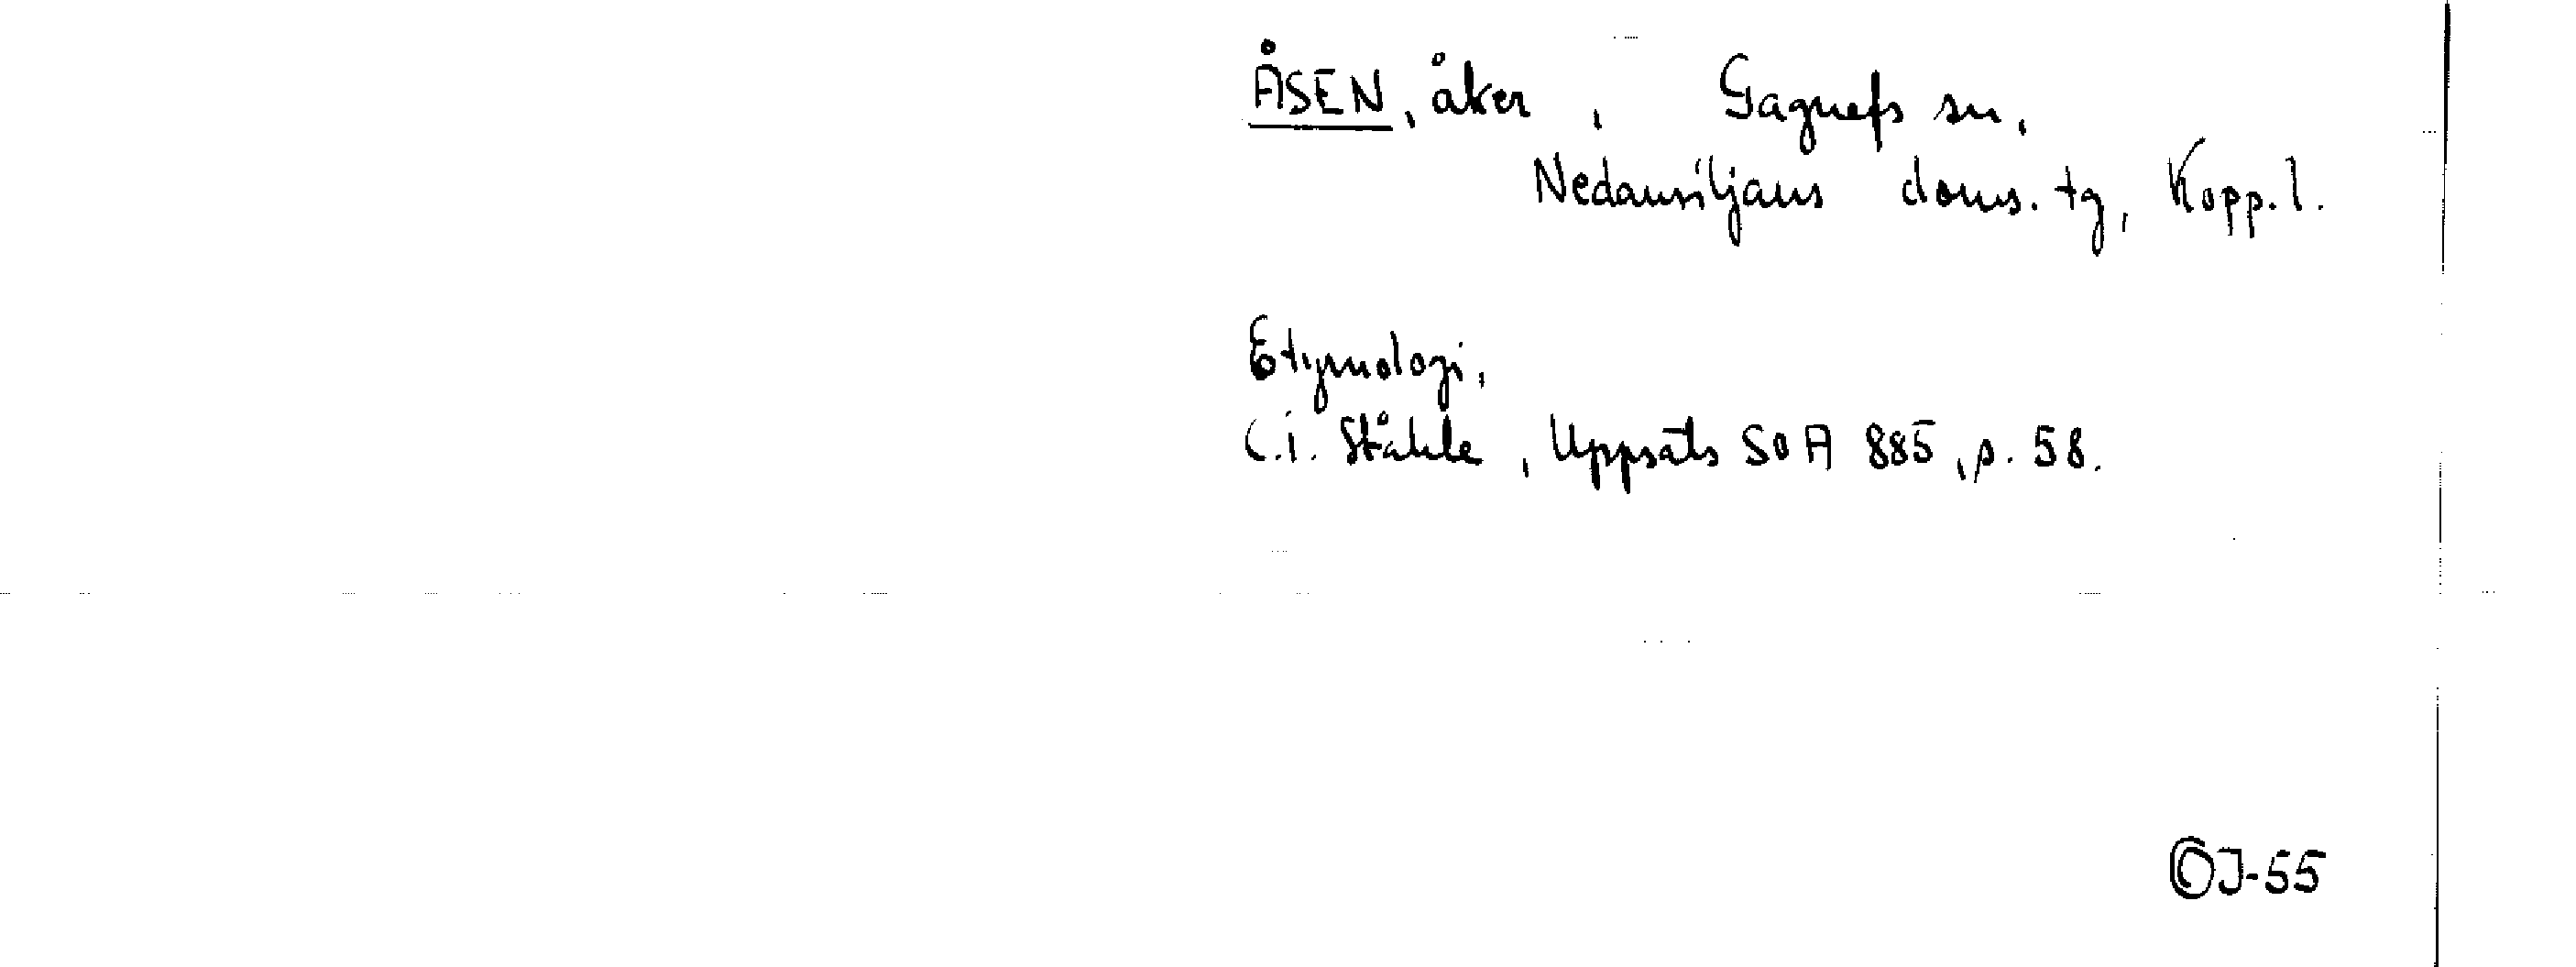 ÅSEN, åker, Gagnefs sn,
Nedansiljans doms. tg, Kopp. l.
Etymologi,
C.i. Ståhle, Uppsats SOA 885, p. 58.
OJ-55